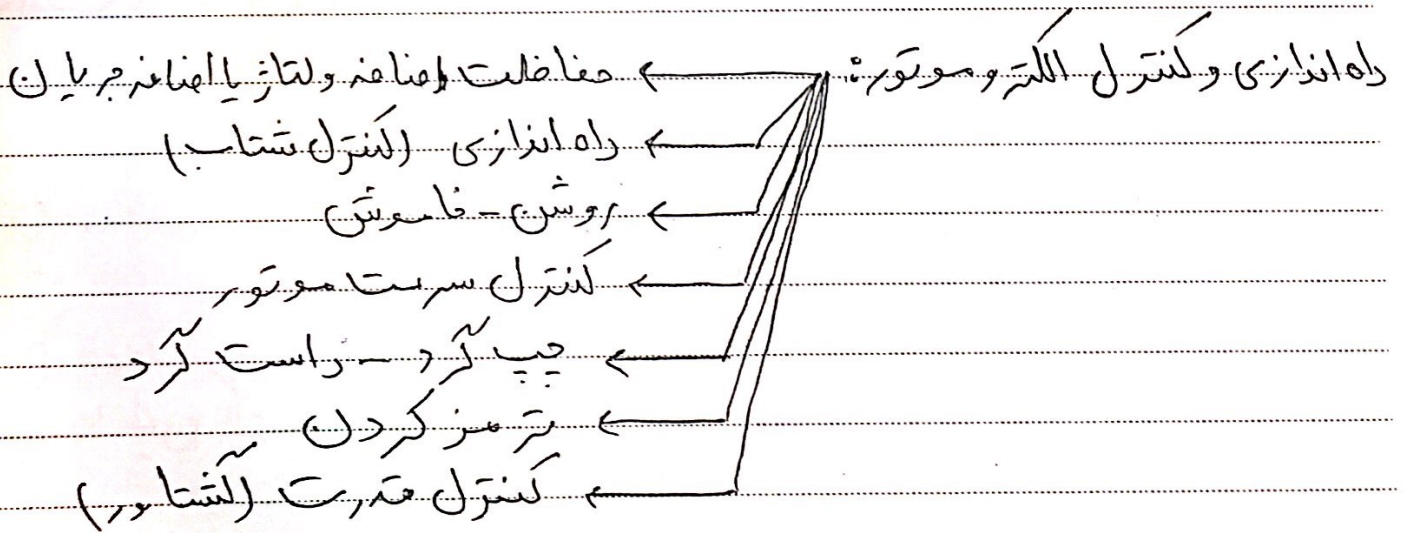 راه اندازی و کنترل الکتروموتور: حفاظت اضافه ولتاژ یا اضافه جریان
راه اندازی (کنترل شتاب)
روشن - خاموش
کنترل سرعت موتور
چپ گرد - راست گرد
ترمز کردن
کنترل قدرت (گشتاور)